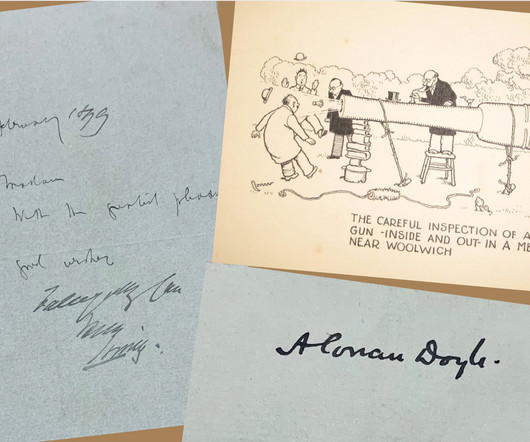 February 1899
Madam
With the greatest pleasure
good wishes
Henry
Irving.
THE CAREFUL INSPECTION OF A
GUN -INSIDE AND OUT- IN A ME
NEAR WOOLWICH
A Conan Doyle.